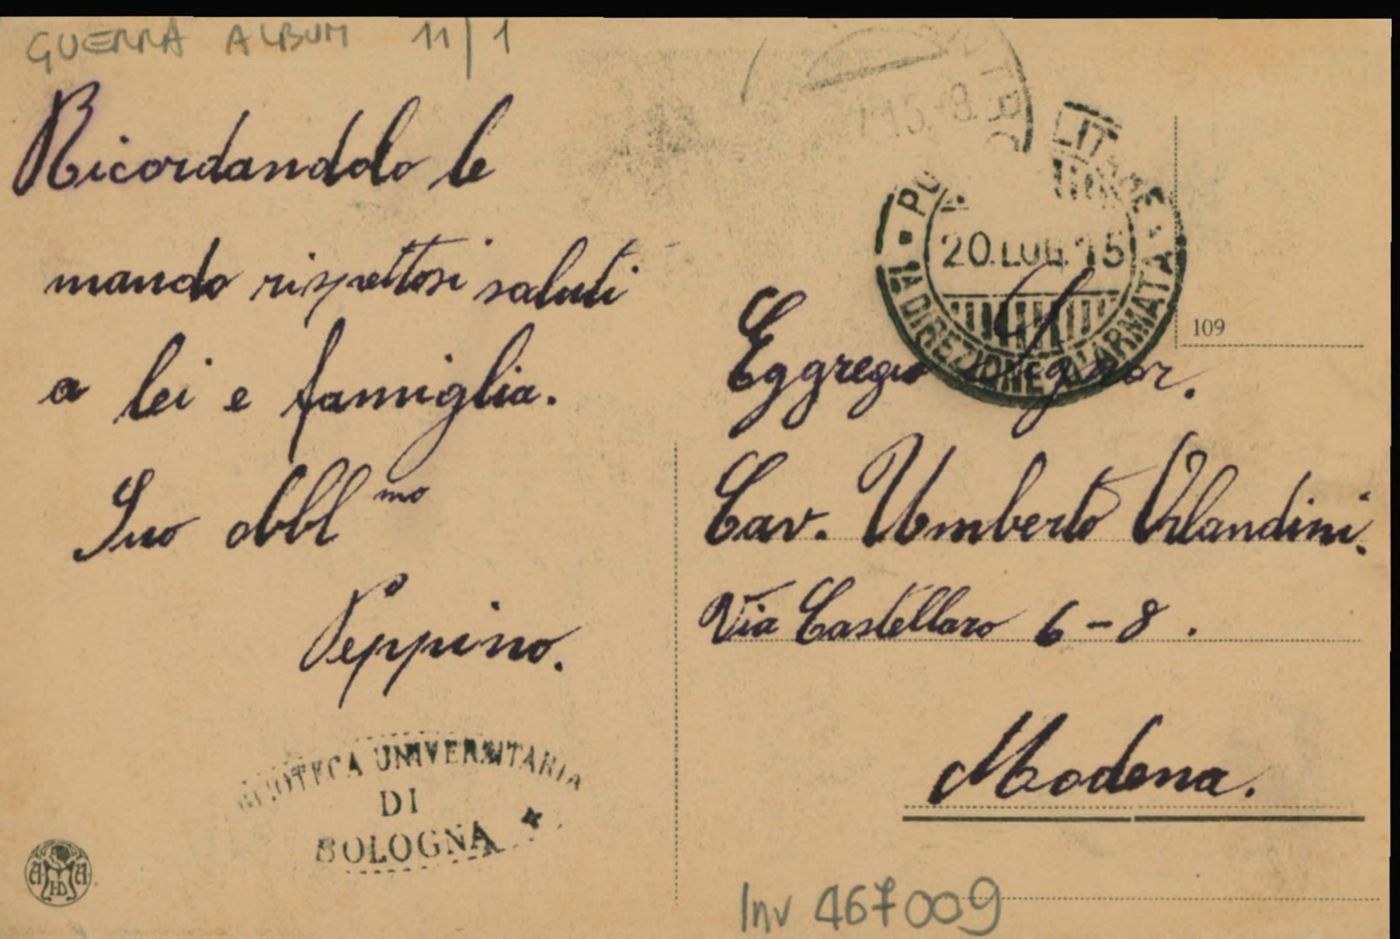 GUERRA ALBUM 11/1
Ricordandolo le
mando rispettosi saluti
a lei e famiglia.
Suo obbl mo
Peppino.
BIBLIOTECA UNIVERSITARIA
DI
BOLOGNA
15.-8
20.LUG.15
1A DIREZIONE D'ARMATA
109
Eggregio Signor.
Cav. Umberto Orlandini.
Via Castellaro 6-8.
Modena.
Inv 467009